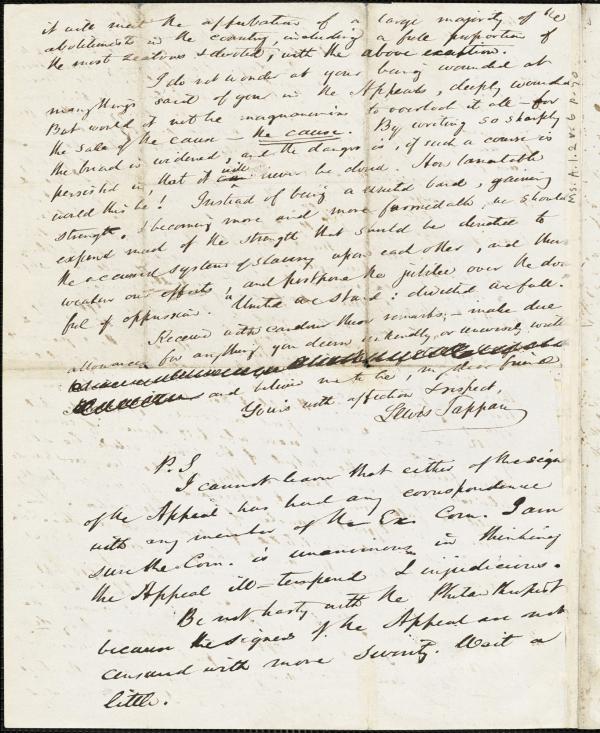 it will meet the approbation of a large majority of the
abolitionists in the country, including a full proportion of
the most zealous & devoted, with the above exception.
I do not wonder at your being wounded at
many things said of you in the Appeals, deeply wounded
But would it not be magnanimous to overlook it all – for
the sake of the cause – the cause. By writing so sharply
the breach is widened, and the danger is, if such a course is
persisted in, that it will never be closed. How lamentable
would this be! Instead of being a united band, gaining
strength, & becoming more and more formidable, we should
expend much of the strength that should be devoted to
the accursed system of slavery upon each other, and thus
weaken our efforts, and postpone the jubilee over the down
ful of oppression. "United we stand: divided we fall."
Receive with candor these remarks, – make due
allowance for anything you deem unkindly or unwisely written
and believe me to be, my dear friend
Yours with affection & respect,
Lewis Tappan
P.S
I cannot learn that either of the sign
of the Appeal has had any correspondence
with any member of the Ex. Com. I am
sure the Com. is unanimous in thinking
the Appeal ill-tempered & injudicious.
Be not hasty with the Philanthropist
because the signers of the Appeal are not
censured with more severity. Wait a
little.
Ms.A.1.2 v.6 p.70